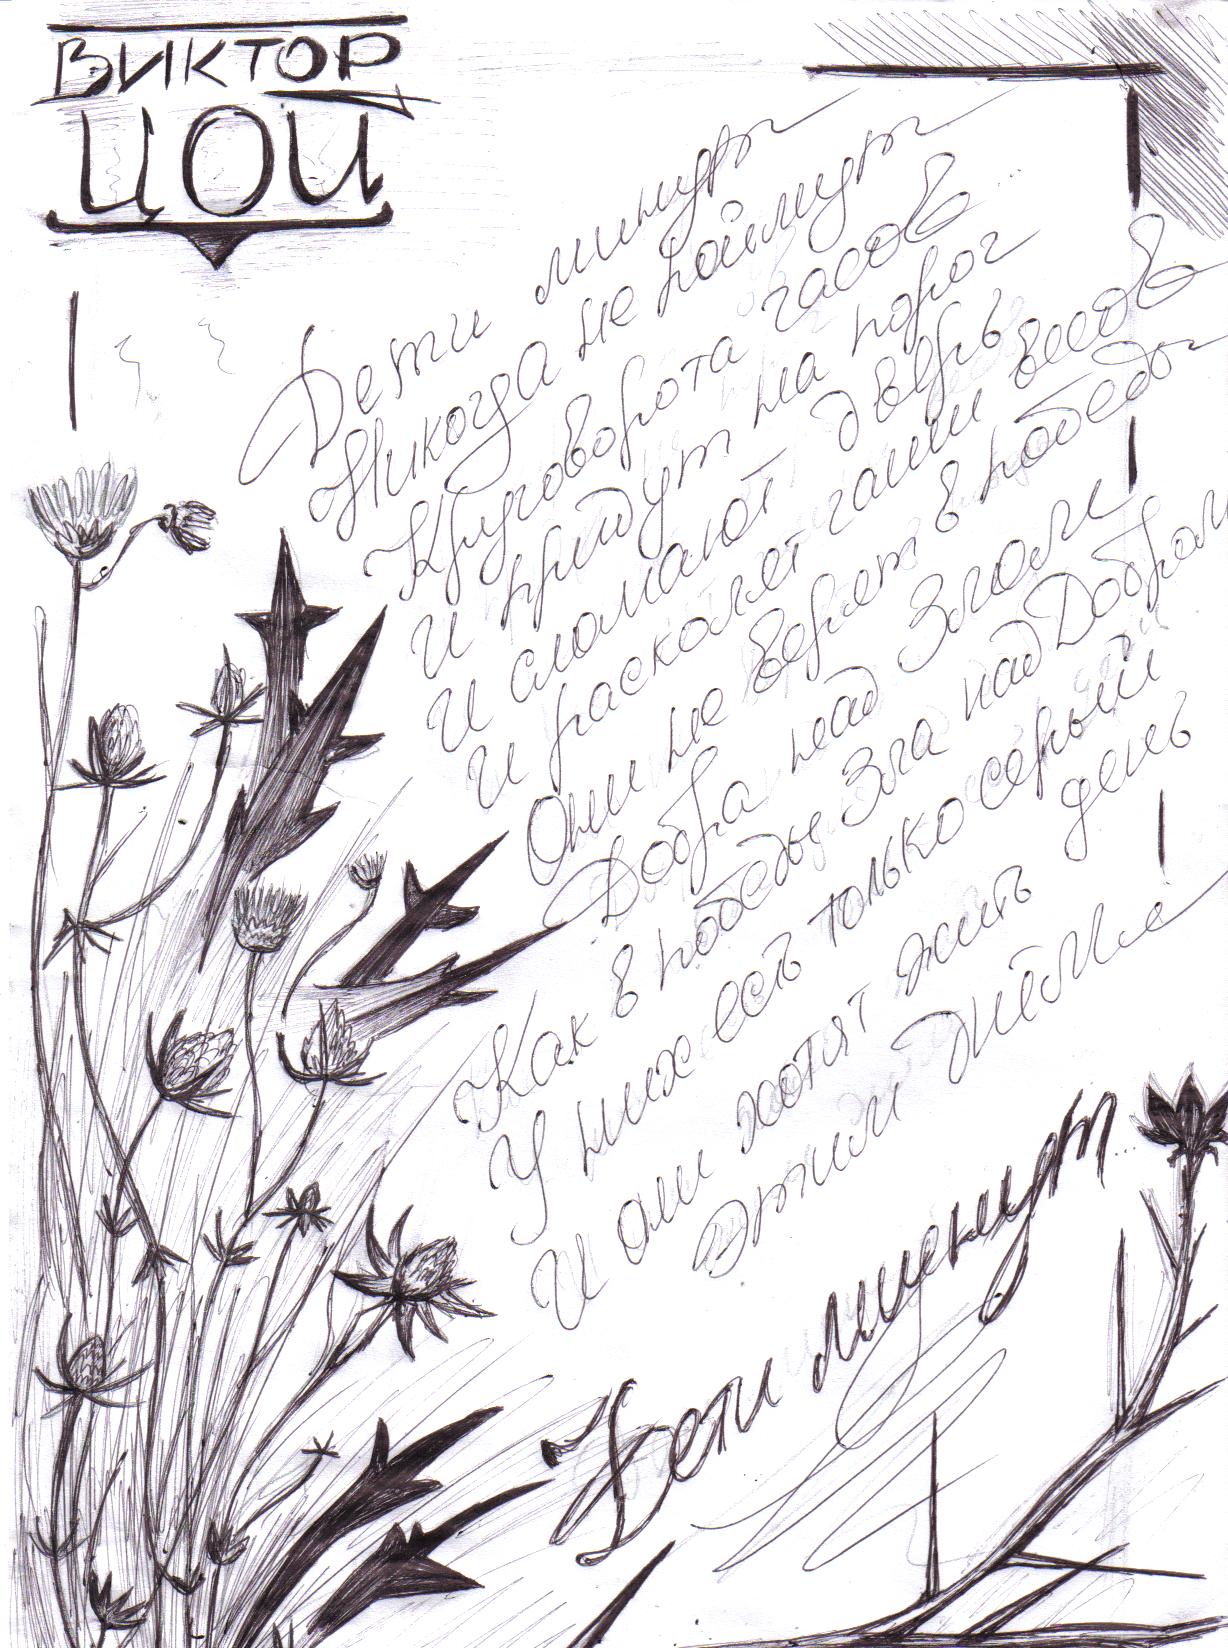 ВИКТОР
ЦОЙ
Дети минут
Никогда не поймут
Круговорота часов...
И придут на порог
И сломают дверь
И расколят чаши весов
Они не верят в победу
Добра над Злом
Как в победу Зла над Добром
У них есть только серый
И они хотят жить день
Этим
Дети минут...